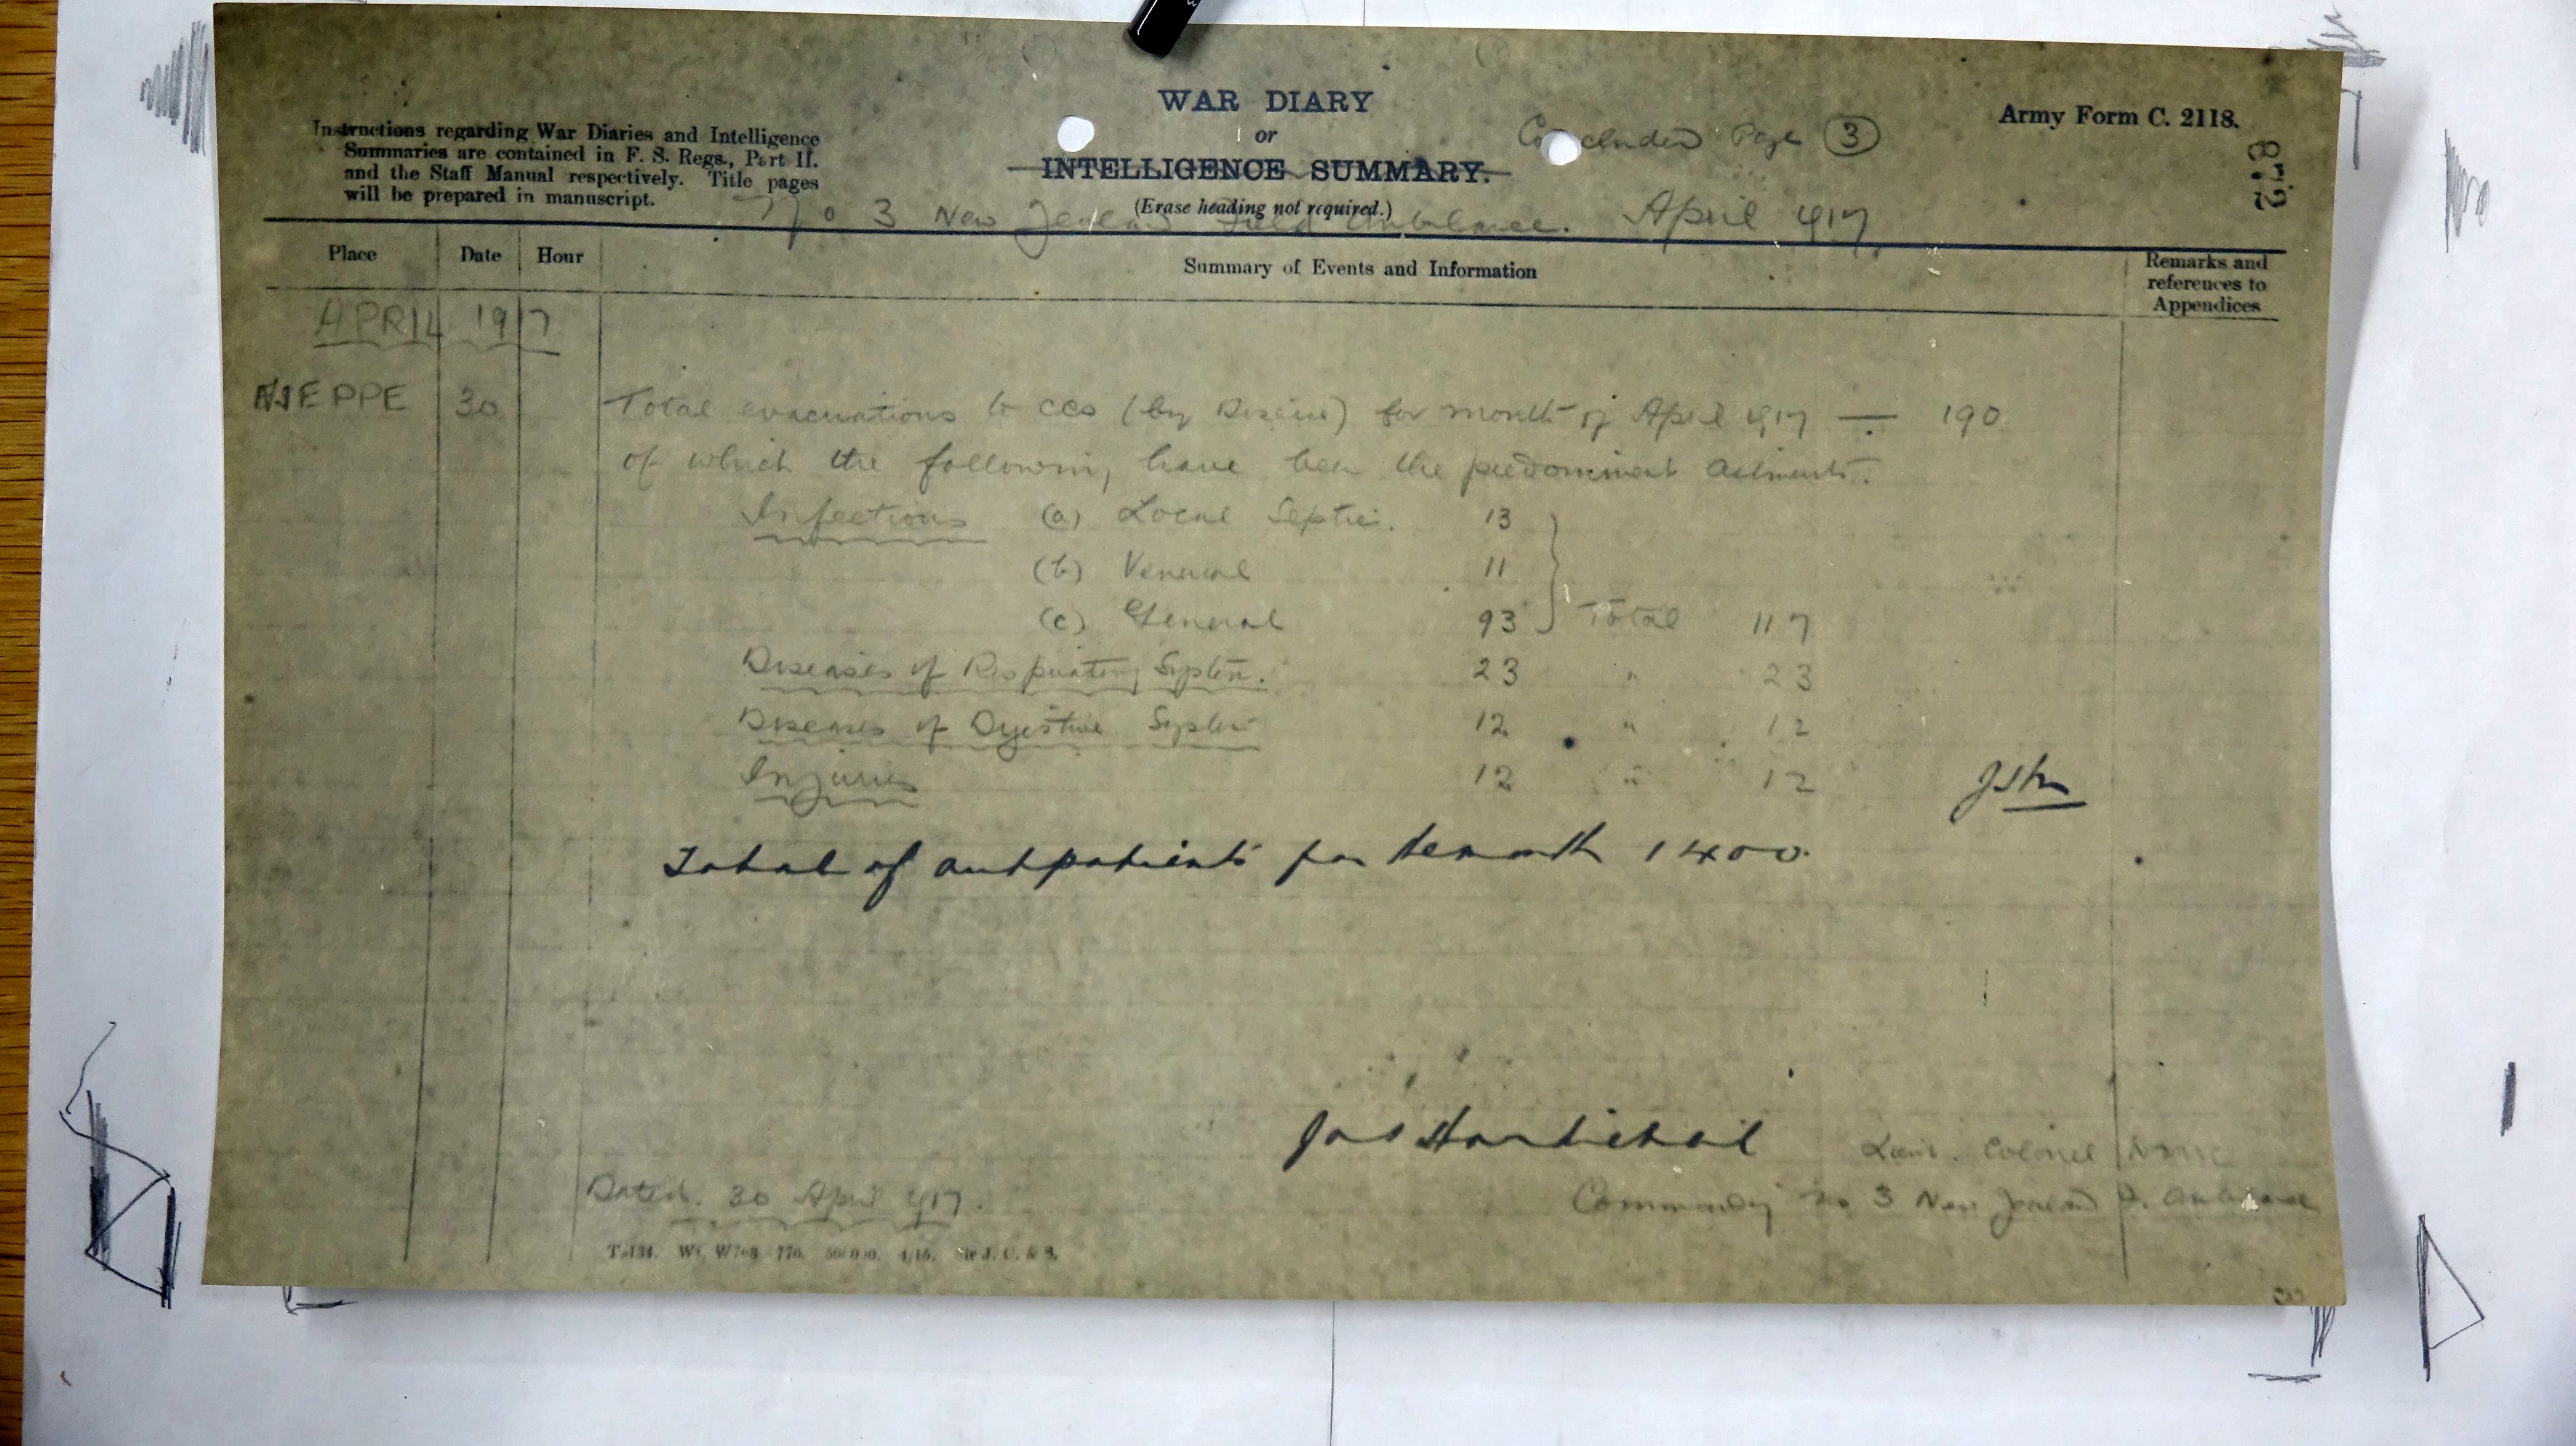 Instructions regarding War Diaries and Intelligence
Summaries are contained in F. S. Regs., Part II.
and the Staff Manual respectively. Title pages
will be prepared in manuscript.
WAR DIARY
or
INTELLIGENCE SUMMARY.
(Erase heading not required.)
Concluded Page 3
Army Form C. 2118.
No 3 New Zealand Field Ambulance. April 1917.
Place Date Hour Summary of Events and Information Remarks and
references to
Appendices
APRIL 1917
NIEPPE 30 Total evacuations to CCS (by Disease) for month of April 1917 — 190
of which the following have been the predominent ailments.
Infections (a) Local Septic. 13
(b) Venereal 11
(c) General 93 } Total 117
Diseases of Respiratory System. 23 " 23
Diseases of Digestive System 12 " 12
Injuries 12 " 12
Total of outpatients for the month 1400.
Lieut. Colonel NZMC
Dated. 30 April 1917.
Commanding No 3 New Zealand F. Ambulance